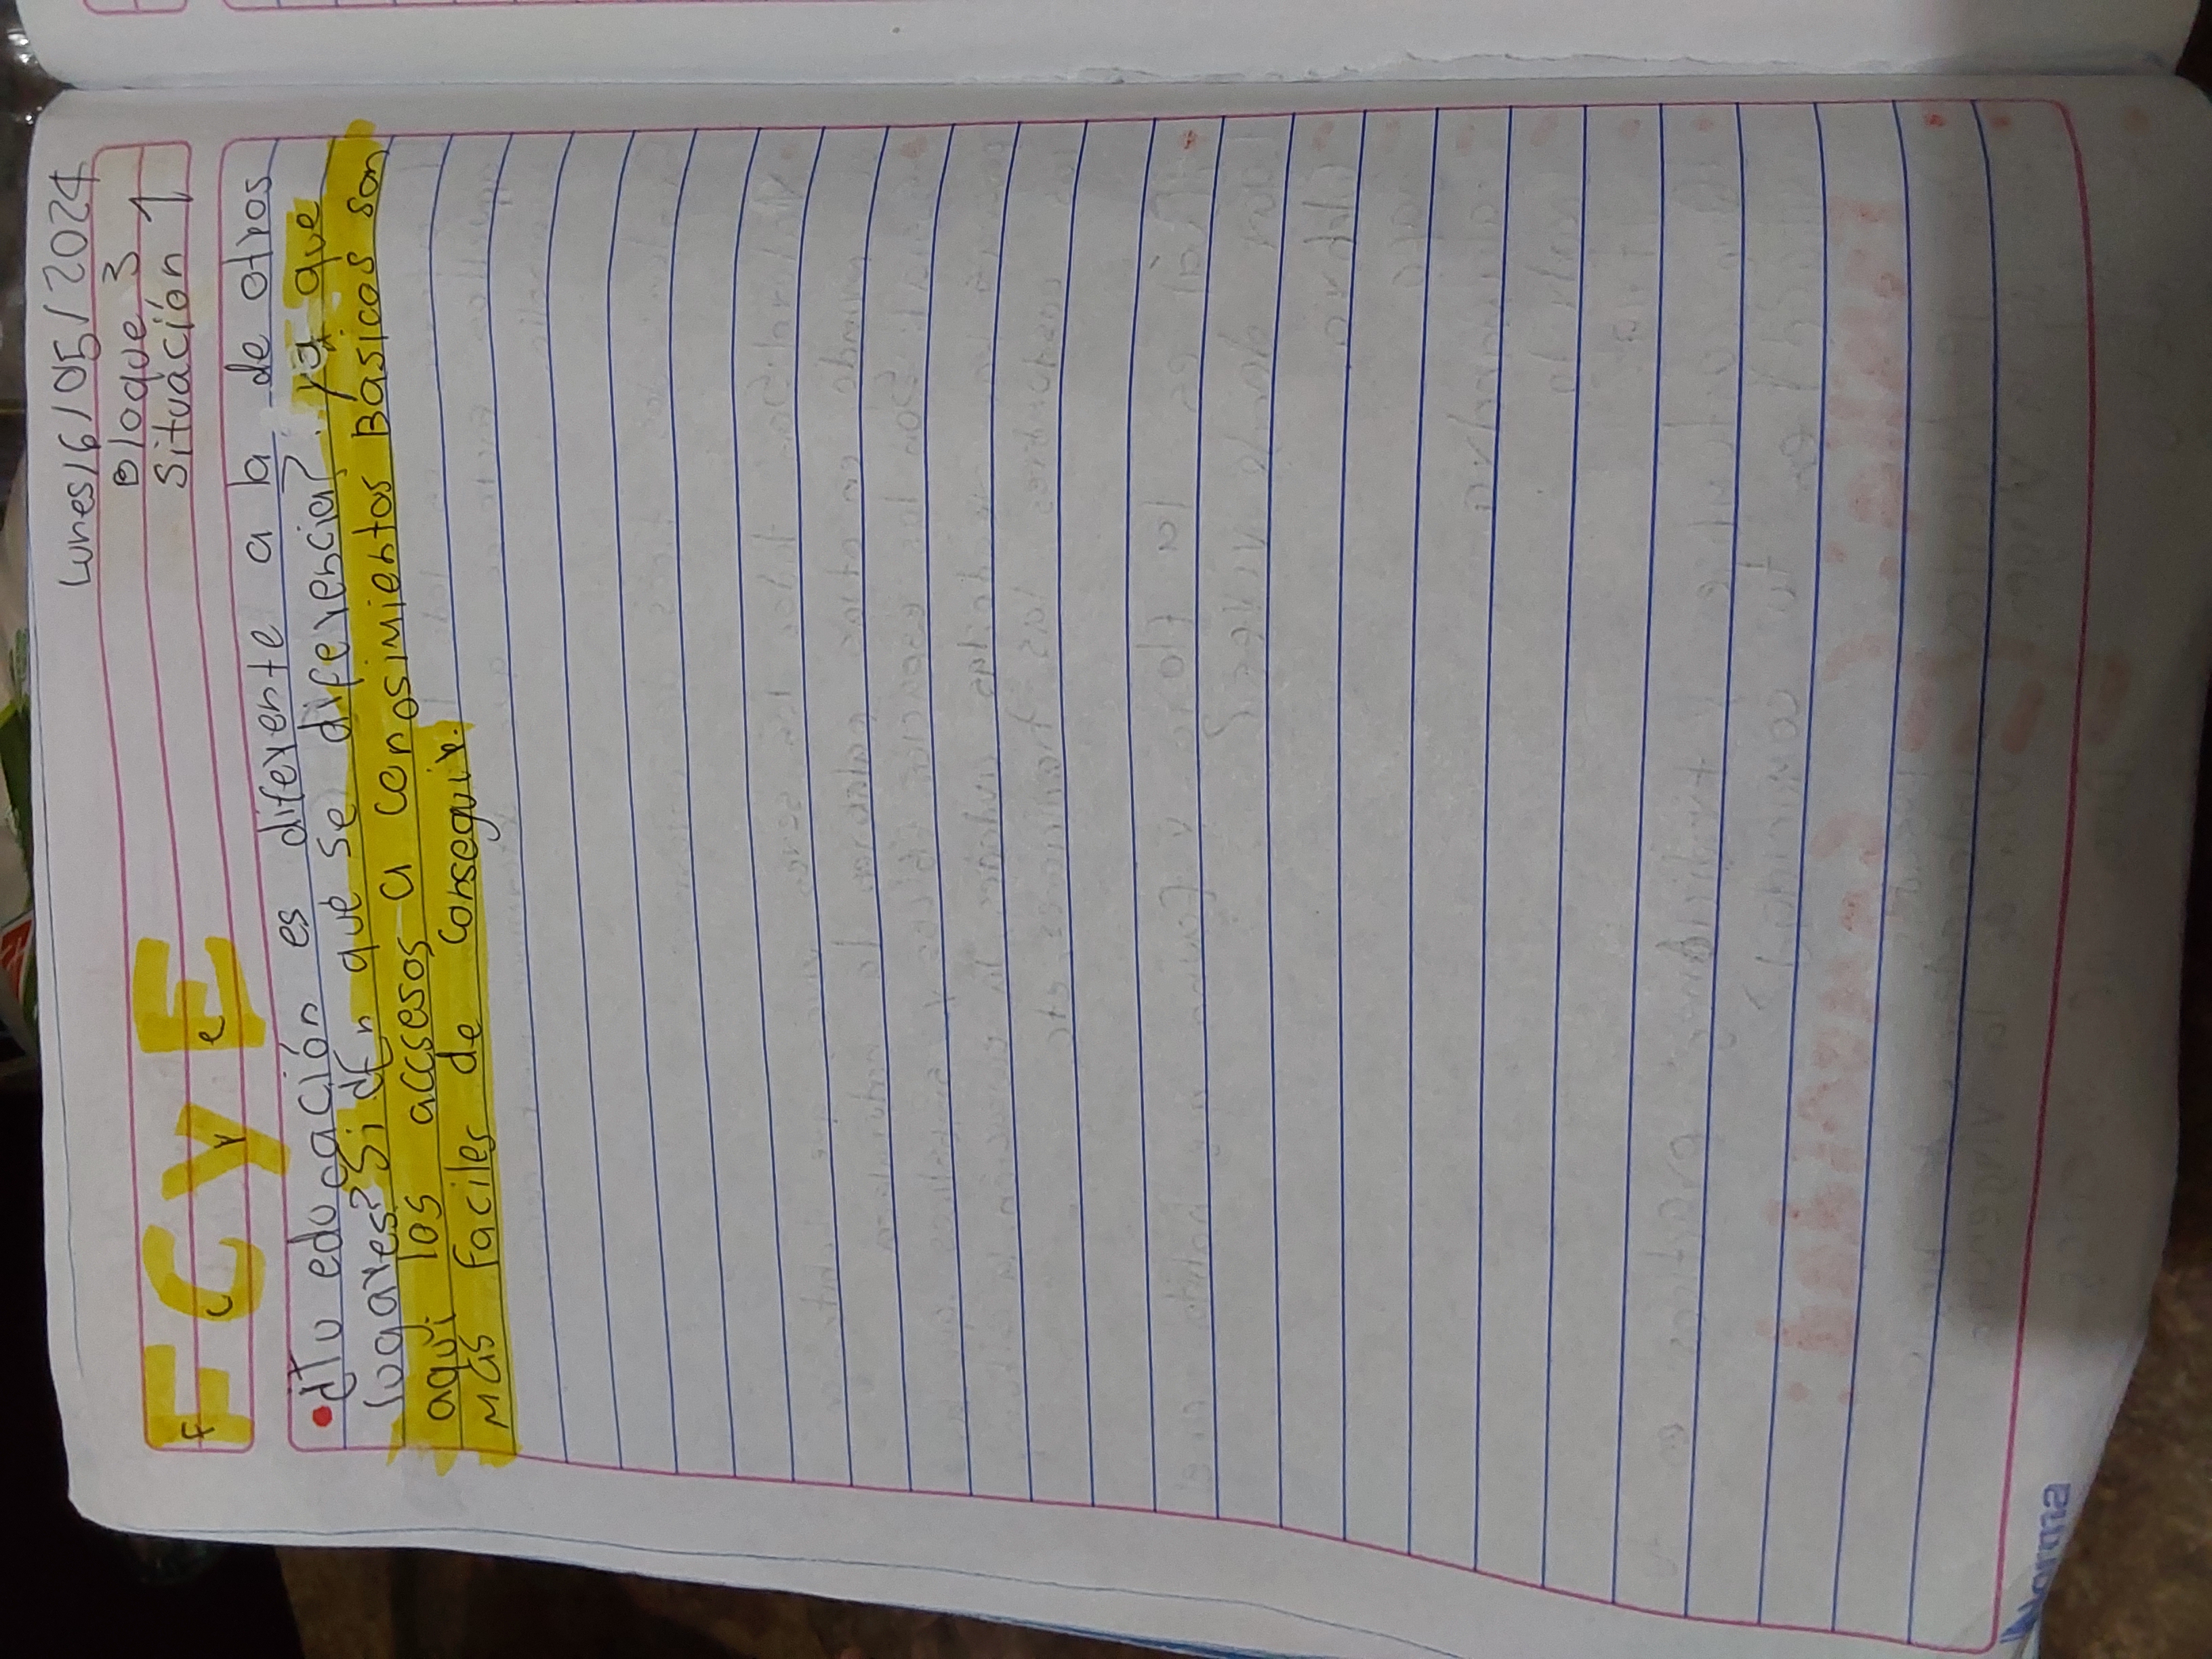 Lunes/6/05/2024
Bloque 3
Situación 1
FCyE
•¿Tu educación es diferente a la de otros
lugares? Si ¿En qué se diferencia? ya que
aquí los accesos a conosimientos Básicos son
Más Faciles de Conseguir.
Norma